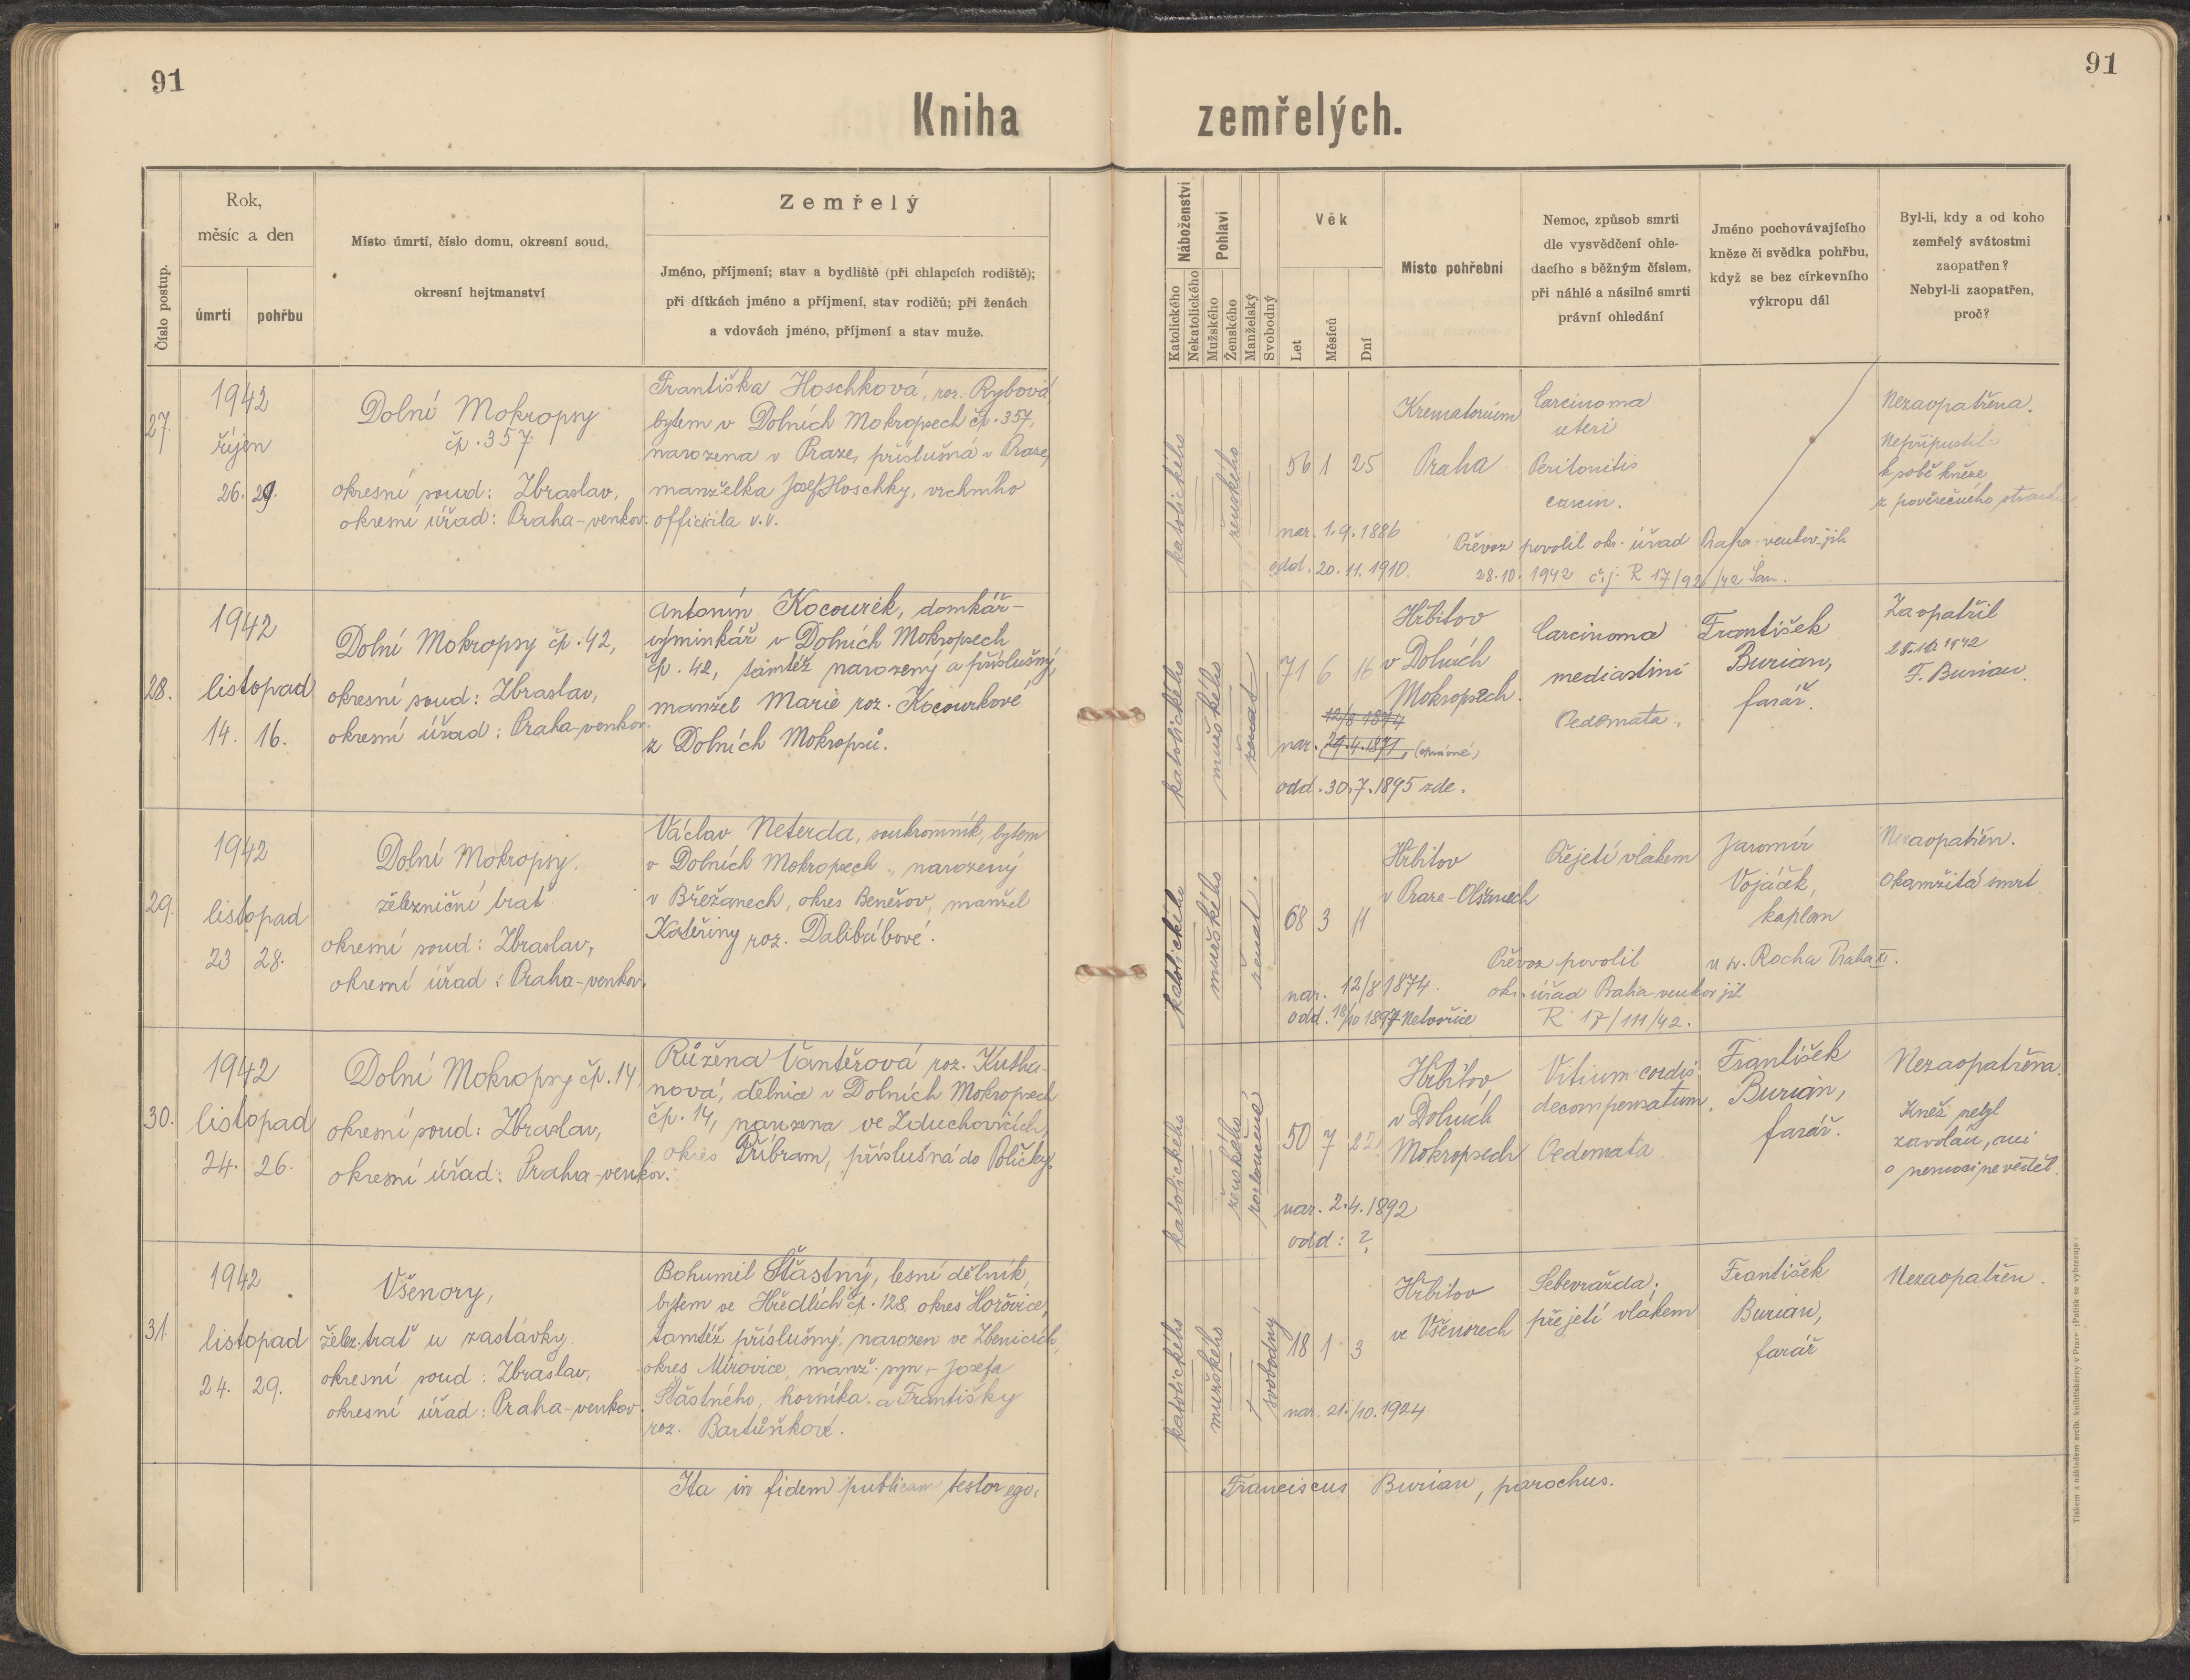 91
91
Kniha zemřelých.
Číslo postup.
Rok,
měsíc a den
úmrtí
pohřbu
Místo úmrtí, číslo domu, okresní soud,
okresní hejtmanství
Zemřelý
Jméno, příjmení; stav a bydliště (při chlapcích rodiště);
při dítkách jméno a příjmení, stav rodičů; při ženách
a vdovách jméno, příjmení a stav muže.
Náboženství
Katolického
Nekatolického
Pohlaví
Mužského
Ženského
Manželský
Svobodný
Věk
Let
Měsíců
Dní
Místo pohřební
Nemoc, způsob smrti
dle vysvědčení ohle-
dacího s běžným číslem,
při náhlé a násilné smrti
právní ohledání
Jméno pochovávajícího
kněze či svědka pohřbu,
když se bez církevního
výkropu dál
Byl-li, kdy a od koho
zemřelý svátostmi
zaopatřen?
Nebyl-li zaopatřen,
proč?
27.
1942
říjen
26. 29.
Dolní Mokropsy
čp. 357
okresní soud: Zbraslav,
okresní úřad: Praha-venkov.
Františka Hoschková, roz. Rybová
bytem v Dolních Mokropsech čp. 357,
narozena v Praze, příslušná v Praze,
manželka Josefa Hoschky, vrchního
officiála v.v.
katolického
ženského
56 1 25
nar. 1.9.1886
odd. 20.11.1910.
Krematorium
Praha
Carcinoma
uteri
Peritonitis
carcin.
Převoz povolil okr. úřad Praha-venkov-jih
28.10.1942 č.j. R 17/92/42 San.
Nezaopatřena.
Nepřipustila
k sobě kněze
z pověrečného strachu
28.
1942
listopad
14. 16.
Dolní Mokropsy čp. 42,
okresní soud: Zbraslav,
okresní úřad: Praha-venkov.
Antonín Kocourek, domkář-
výminkář v Dolních Mokropsech
čp. 42, tamtéž narozený a příslušný,
manžel Marie roz. Kocourkové
z Dolních Mokropsů.
katolického
mužského
ženat
71 6 16
12/8 1874
nar. 29.4.1871, (správné)
odd. 30.7.1895 zde.
Hřbitov
v Dolních
Mokropsech.
Carcinoma
mediastini
Oedemata.
František
Burian,
farář.
Zaopatřil
28.10.1942
F. Burian.
29.
1942
listopad
23 28.
Dolní Mokropsy.
železniční trať
okresní soud: Zbraslav,
okresní úřad: Praha-venkov.
Václav Neterda, soukromník, bytem
v Dolních Mokropsech, narozený
v Břežanech, okres Benešov, manžel
Kateřiny roz. Dalibábové.
katolického
mužského
ženat.
68 3 11
nar. 12/8 1874.
odd. 18/10 1897 Netvořice
Hřbitov
v Praze-Olšanech
Přejetí vlakem
Převoz povolil
okr. úřad Praha venkov jih
R 17/111/42.
Jaromír
Vojáček,
kaplan
u sv. Rocha Praha XI.
Nezaopatřen.
Okamžitá smrt
30.
1942
listopad
24. 26.
Dolní Mokropsy čp. 14,
okresní soud: Zbraslav,
okresní úřad: Praha-venkov.
Růžena Vantěrová roz. Kutha-
nová, dělnice v Dolních Mokropsech
čp. 14, narozena ve Zduchovicích,
okres Příbram, příslušná do Poličky.
katolického
ženského
rozloučená
50 7 22
nar. 2.4.1892
odd: ?
Hřbitov
v Dolních
Mokropsech
Vitium cordis
decompensatum.
Oedemata
František
Burian,
farář.
Nezaopatřena.
Kněz nebyl
zavolán, ani
o nemoci nevěděl.
31.
1942
listopad
24. 29.
Všenory,
želez. trať u zastávky.
okresní soud: Zbraslav,
okresní úřad: Praha-venkov.
Bohumil Šťastný, lesní dělník,
bytem ve Hředlích čp. 128, okres Hořovice,
tamtéž příslušný, narozen ve Zbenicích,
okres Mirovice, manž. syn + Josefa
Šťastného, horníka a Františky
roz. Bartůňkové.
katolického
mužského
svobodný
18 1 3
nar. 21./10.1924
Hřbitov
ve Všenorech
Sebevražda;
přejetí vlakem
František
Burian,
farář
Nezaopatřen.
Ita in fidem publicam testor ego:
Franciscus Burian, parochus.